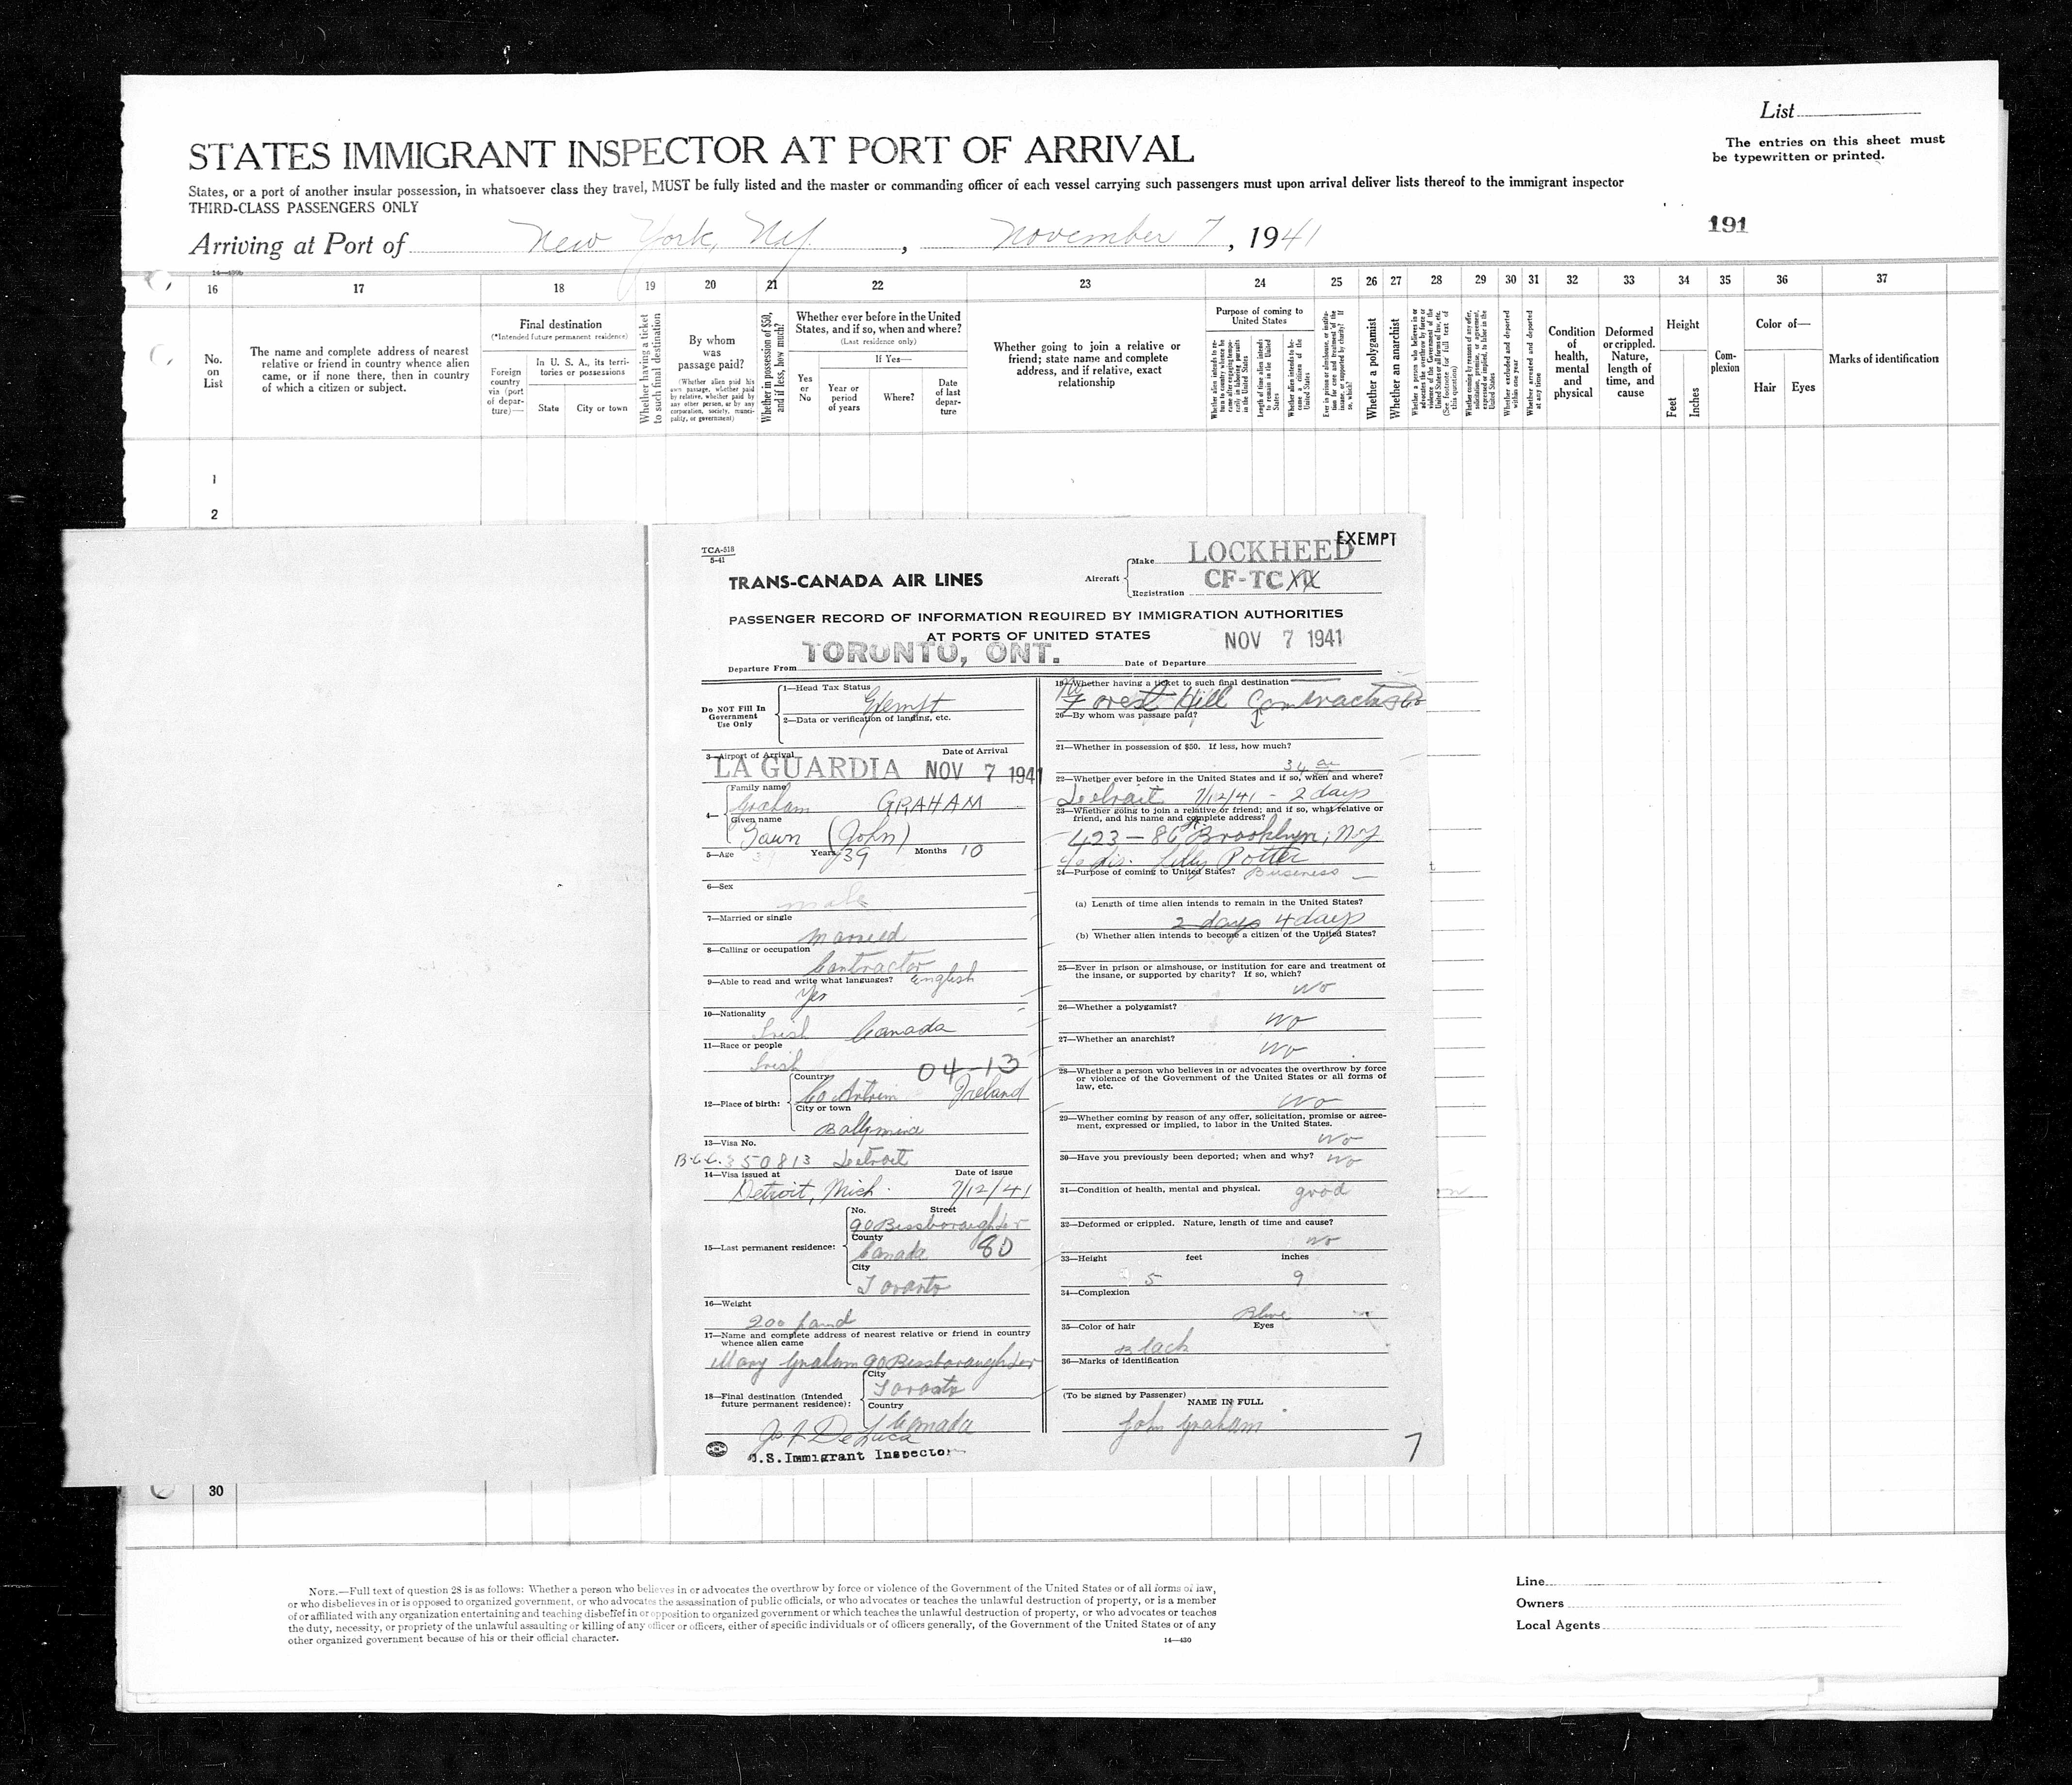 List
The entries on this sheet must
be typewritten or printed.
STATES IMMIGRANT INSPECTOR AT PORT OF ARRIVAL
States, or a port of another insular possession, in whatsoever class they travel, MUST be fully listed and the master or commanding officer of each vessel carrying such passengers must upon arrival deliver lists thereof to the immigrant inspector
THIRD-CLASS PASSENGERS ONLY
191
Arriving at Port of New York, N.Y. , November 7, 1941
16 17 18 19 20 21 22 23 24 25 26 27 28 29 30 31 32 33 34 35 36 37
No.
on
List
The name and complete address of nearest
relative or friend in country whence alien
came, or if none there, then in country
of which a citizen or subject.
Final destination
(*Intended future permanent residence)
Foreign
country
via (port
of depar-
ture)—
In U. S. A., its terri-
tories or possessions
State
City or town
Whether having a ticket
to such final destination
By whom
was
passage paid?
(Whether alien paid his
own passage, whether paid
by relative, whether paid by
any other person, or by any
corporation, society, munici-
pality, or government)
Whether in possession of $50,
and if less, how much?
Whether ever before in the United
States, and if so, when and where?
(Last residence only)
If Yes—
Yes
or
No
Year or
period
of years
Where?
Date
of last
depar-
ture
Whether going to join a relative or
friend; state name and complete
address, and if relative, exact
relationship
Purpose of coming to
United States
Length of time alien intends
to remain in the United
States
Whether alien intends to be-
come a citizen of the
United States
Whether a polygamist
Whether an anarchist
Whether excluded and deported
within one year
Whether arrested and deported
at any time
Condition
of
health,
mental
and
physical
Deformed
or crippled.
Nature,
length of
time, and
cause
Height
Feet
Inches
Com-
plexion
Color of—
Hair Eyes
Marks of identification
1
2
TCA-518
5-41
TRANS-CANADA AIR LINES
Aircraft
Make LOCKHEED
EXEMPT
Registration CF-TC
PASSENGER RECORD OF INFORMATION REQUIRED BY IMMIGRATION AUTHORITIES
AT PORTS OF UNITED STATES
Departure From TORONTO, ONT. Date of Departure NOV 7 1941
Do NOT Fill In
Government
Use Only
1—Head Tax Status
Exempt
2—Data or verification of landing, etc.
3—Airport of Arrival Date of Arrival
LA GUARDIA NOV 7 1941
4—
Family name
Graham GRAHAM
Given name
(John)
5—Age Years 39 Months 10
6—Sex
male
7—Married or single
Married
8—Calling or occupation
Contractor
9—Able to read and write what languages? English
Yes
10—Nationality
Irish Canada
11—Race or people
Irish 04-13
12—Place of birth:
Country
Co Antrim Ireland
City or town
Ballymina
13—Visa No.
350813 Detroit
14—Visa issued at Date of issue
Detroit, Mich. 7/12/41
15—Last permanent residence:
No. Street
90 Bessboraugh Dr
County
Canada 80
City
Toronto
16—Weight
200 pand
17—Name and complete address of nearest relative or friend in country
whence alien came
Mary Graham 90 Bessboraugh Dr
18—Final destination (Intended
future permanent residence):
City
Toronto
Country
Canada
De Luca
U.S. Immigrant Inspector
19—Whether having a ticket to such final destination
Forest Hill Contractors Co
20—By whom was passage paid?
21—Whether in possession of $50. If less, how much?
34
22—Whether ever before in the United States and if so, when and where?
Detroit 7/12/41 - 2 days
23—Whether going to join a relative or friend; and if so, what relative or
friend, and his name and complete address?
423 — 86 St Brooklyn, N.Y.
Lilly Potter
24—Purpose of coming to United States? Business
(a) Length of time alien intends to remain in the United States?
2 days 4 days
(b) Whether alien intends to become a citizen of the United States?
25—Ever in prison or almshouse, or institution for care and treatment of
the insane, or supported by charity? If so, which?
No
26—Whether a polygamist?
No
27—Whether an anarchist?
No
28—Whether a person who believes in or advocates the overthrow by force
or violence of the Government of the United States or all forms of
law, etc.
No
29—Whether coming by reason of any offer, solicitation, promise or agree-
ment, expressed or implied, to labor in the United States.
No
30—Have you previously been deported; when and why? No
31—Condition of health, mental and physical. good
32—Deformed or crippled. Nature, length of time and cause?
No
33—Height feet inches
5 9
34—Complexion
Blue
35—Color of hair Eyes
Black
36—Marks of identification
(To be signed by Passenger)
NAME IN FULL
John Graham
7
30
NOTE.—Full text of question 28 is as follows: Whether a person who believes in or advocates the overthrow by force or violence of the Government of the United States or of all forms of law,
or who disbelieves in or is opposed to organized government, or who advocates the assassination of public officials, or who advocates or teaches the unlawful destruction of property, or is a member
of or affiliated with any organization entertaining and teaching disbelief in or opposition to organized government or which teaches the unlawful destruction of property, or who advocates or teaches
the duty, necessity, or propriety of the unlawful assaulting or killing of any officer or officers, either of specific individuals or of officers generally, of the Government of the United States or of any
other organized government because of his or their official character.
14—430
Line
Owners
Local Agents